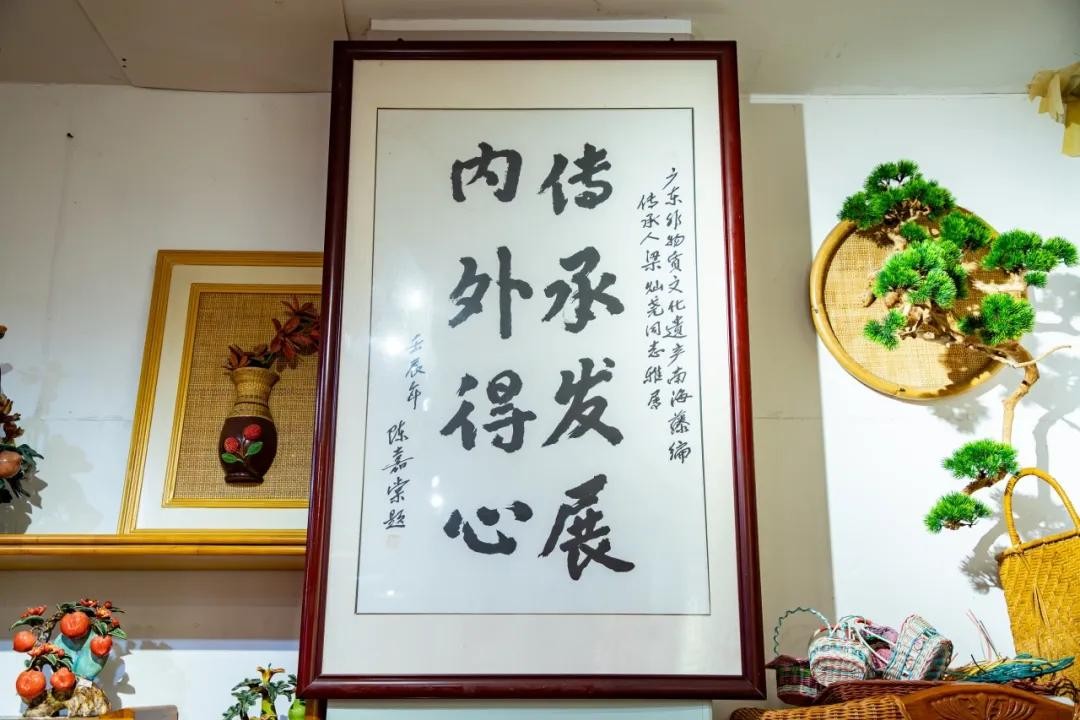 广东非物质文化遗产南海藤编
传承人梁灿尧同志雅属
传承发展
内外得心
壬辰年
陈嘉棠题